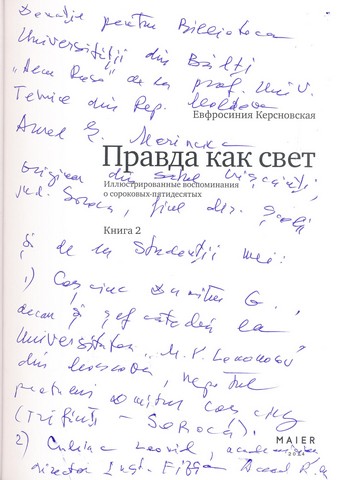 Donație pentru Biblioteca
Universității din Bălți
"Alecu Russo" de la prof. Univ.
Tehnice din Rep. Moldova
Евфросиния Керсновская
Aurel G. Marinciuc
Правда как свет
originar din satul
Иллюстрированные воспоминания
о сороковых-пятидесятых
jud. Soroca, fiul dir. școlii
Книга 2
și de la studenții mei:
1) Dumitru G.,
decan și șef catedră la
Universitatea "M. V. Lomonosov"
din Moscova, nepotul
(Trifăuți – Soroca).
MAIER
2) Leonid, academician
director Inst. Acad. R.